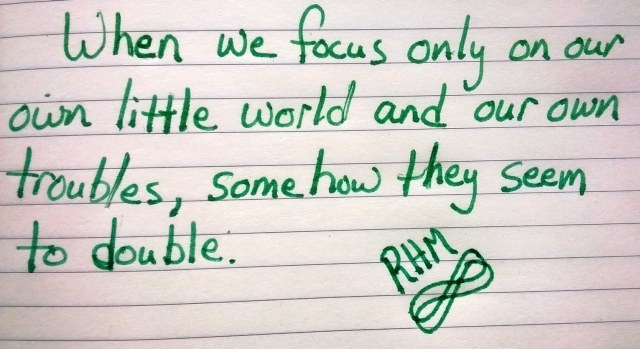 When we focus only on our
own little world and our own
troubles, somehow they seem
to double.
RHM